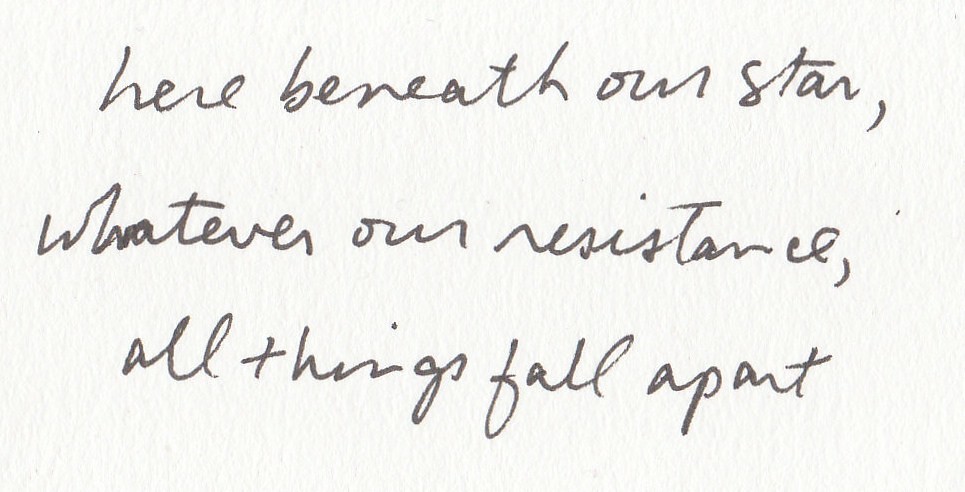 here beneath our star,
whatever our resistance,
all things fall apart